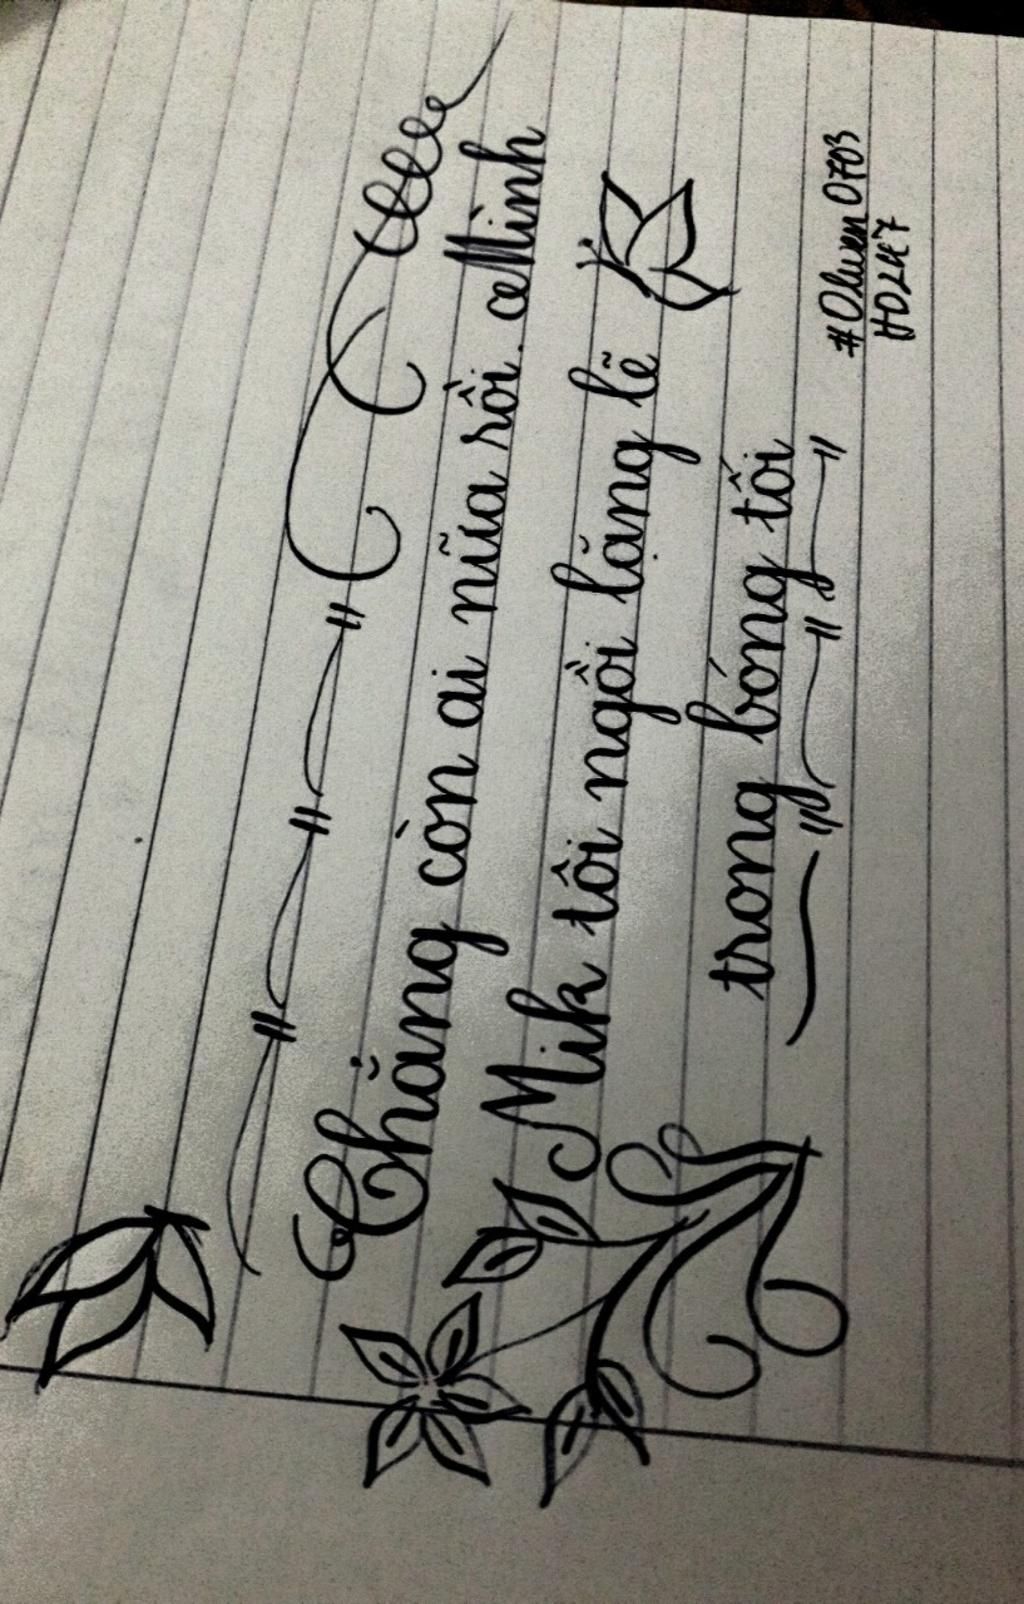 Chẳng còn ai nữa rồi. Mình
Mik tôi ngồi lẳng lẽ
trong bóng tối
#Oluwen0703